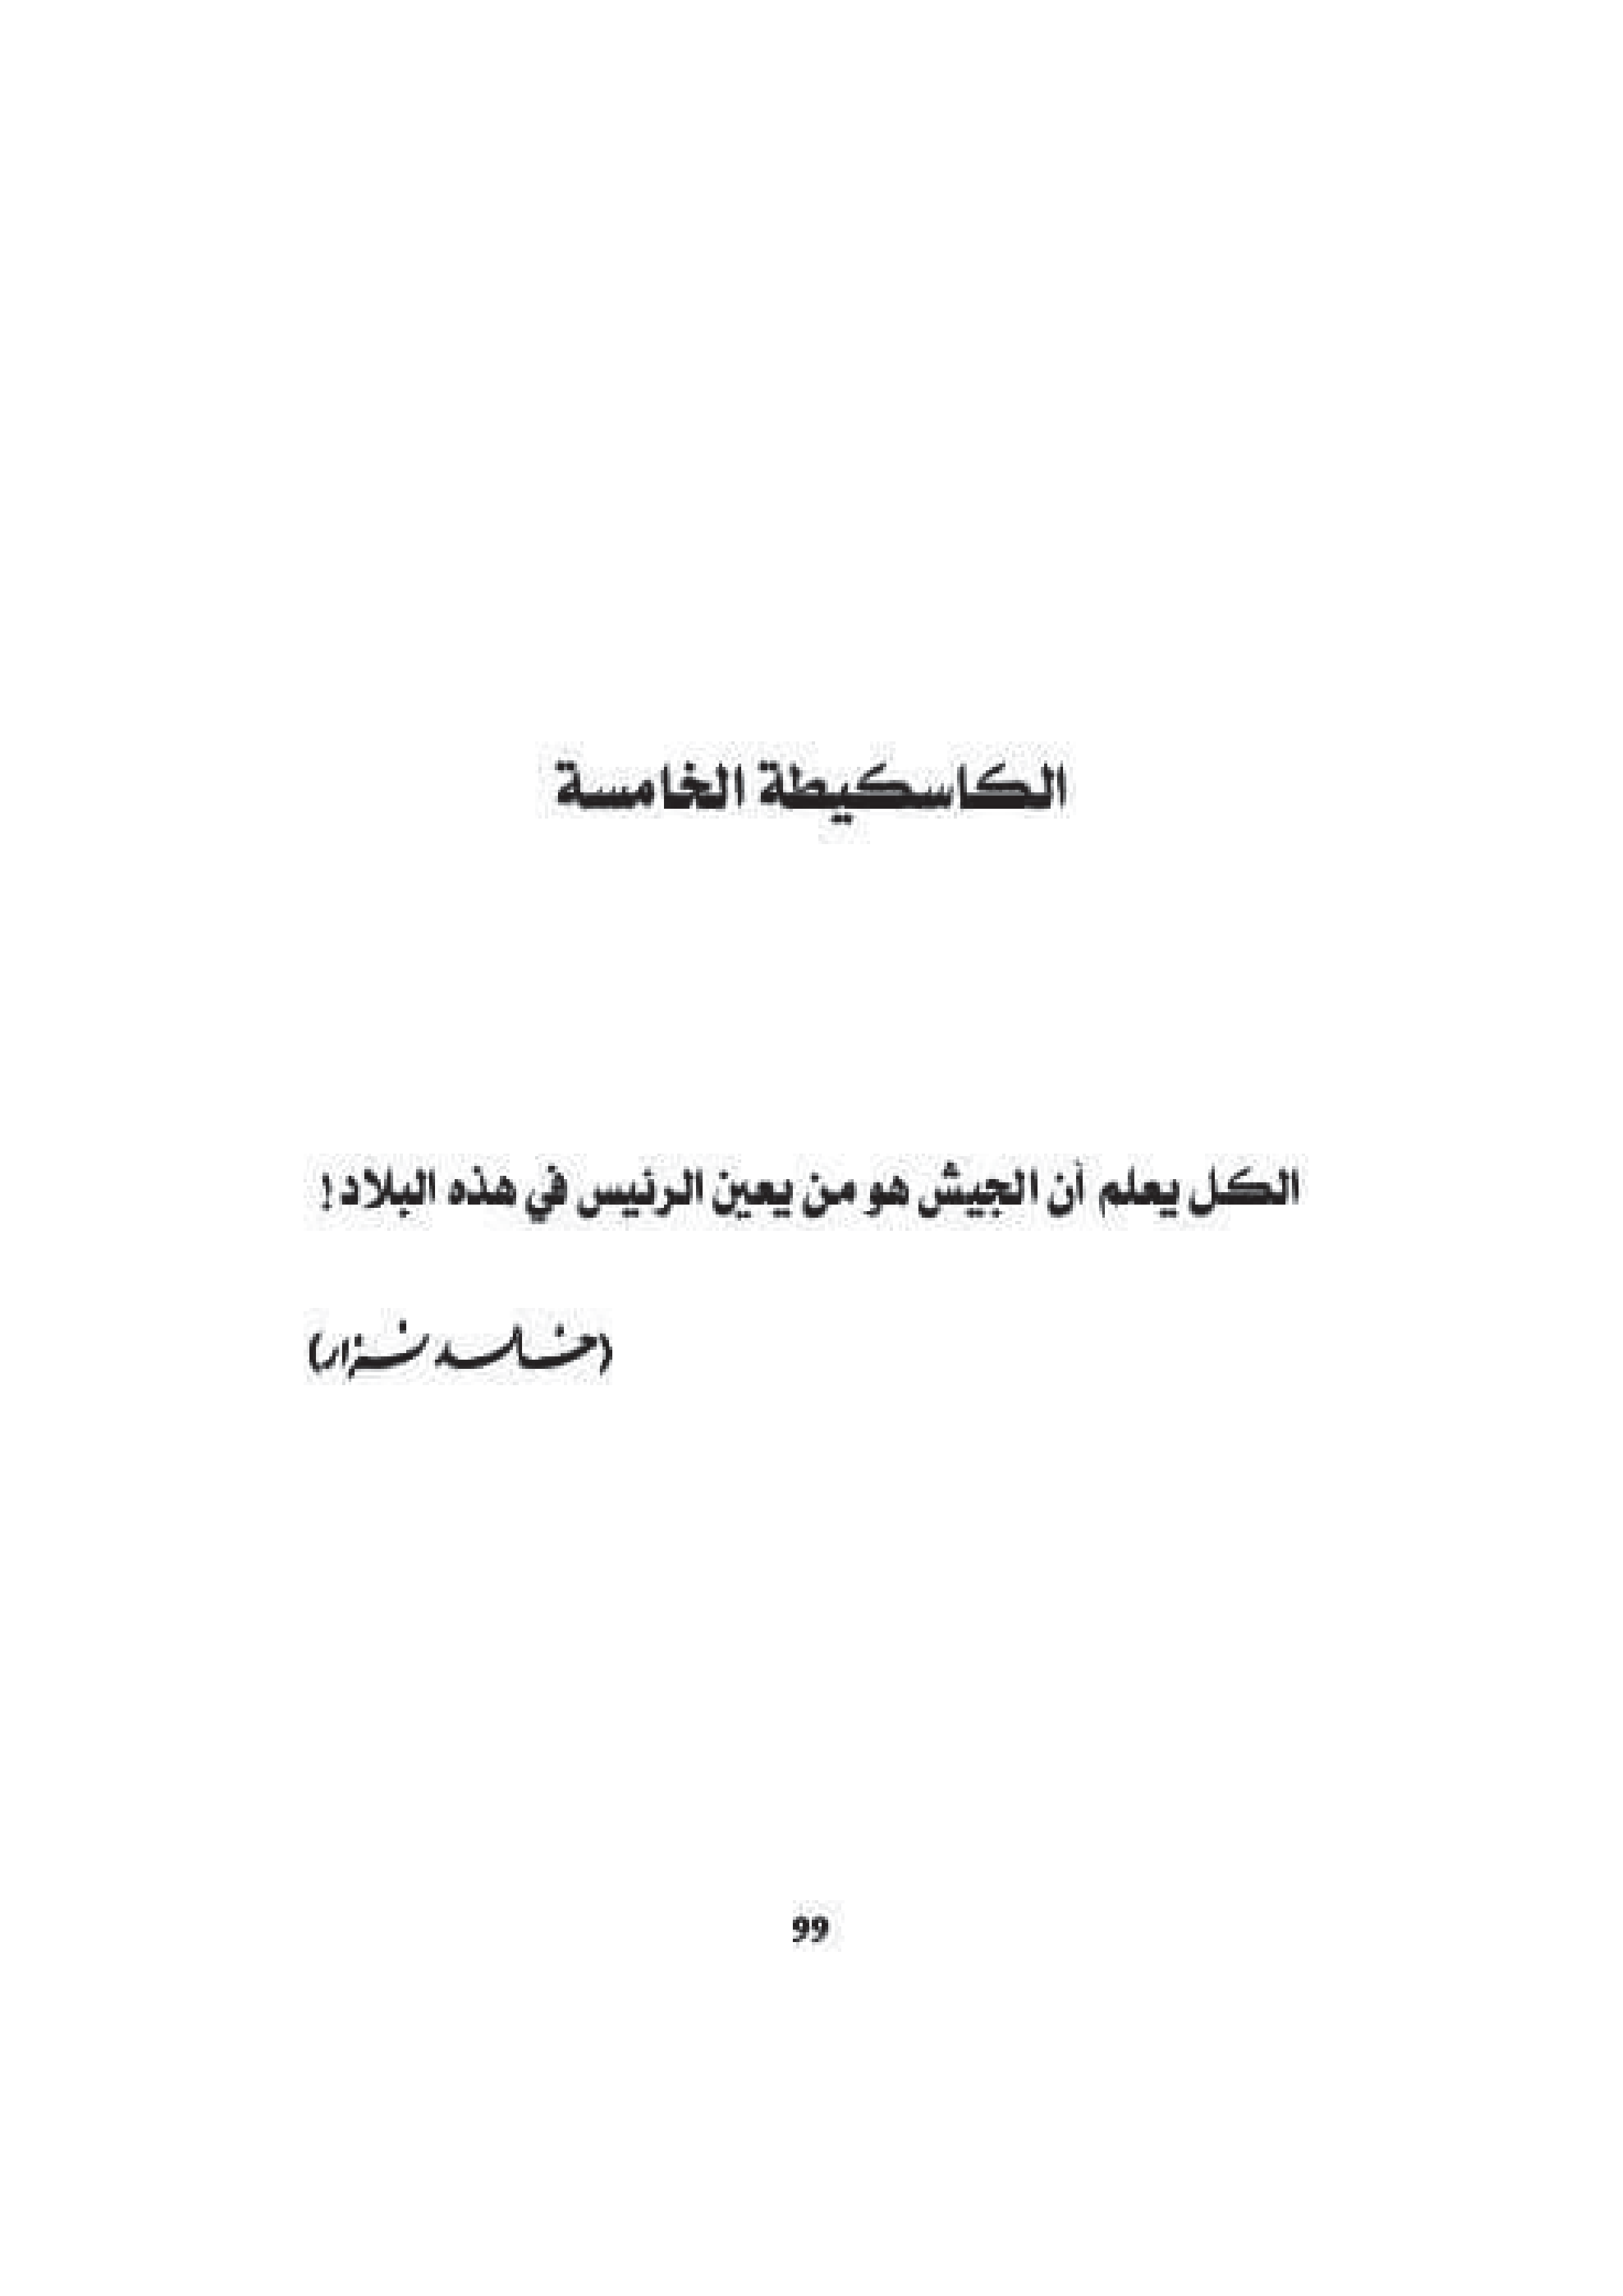 الكاسكيطة الخامسة
الكل يعلم أن الجيش هو من يعين الرئيس في هذه البلاد!
(خالد نزار)
99